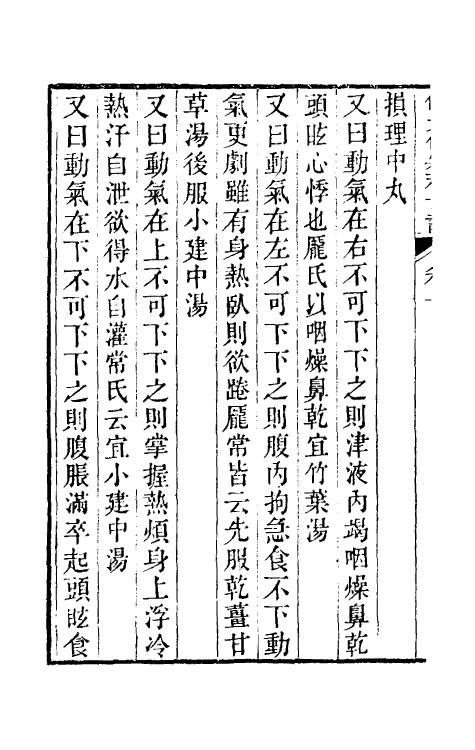 損理中丸
又曰動氣在右不可下下之則津液内竭咽燥鼻乾
頭眩心悸也龐氏以咽燥鼻乾宜竹葉湯
又曰動氣在左不可下下之則腹内拘急食不下動
氣更劇雖有身熱臥則欲踡龐常皆云先服乾薑甘
草湯後服小建中湯
又曰動氣在上不可下下之則掌握熱煩身上浮冷
熱汗自泄欲得水自灌常氏云宜小建中湯
又曰動氣在下不可下下之則腹脹滿卒起頭眩食